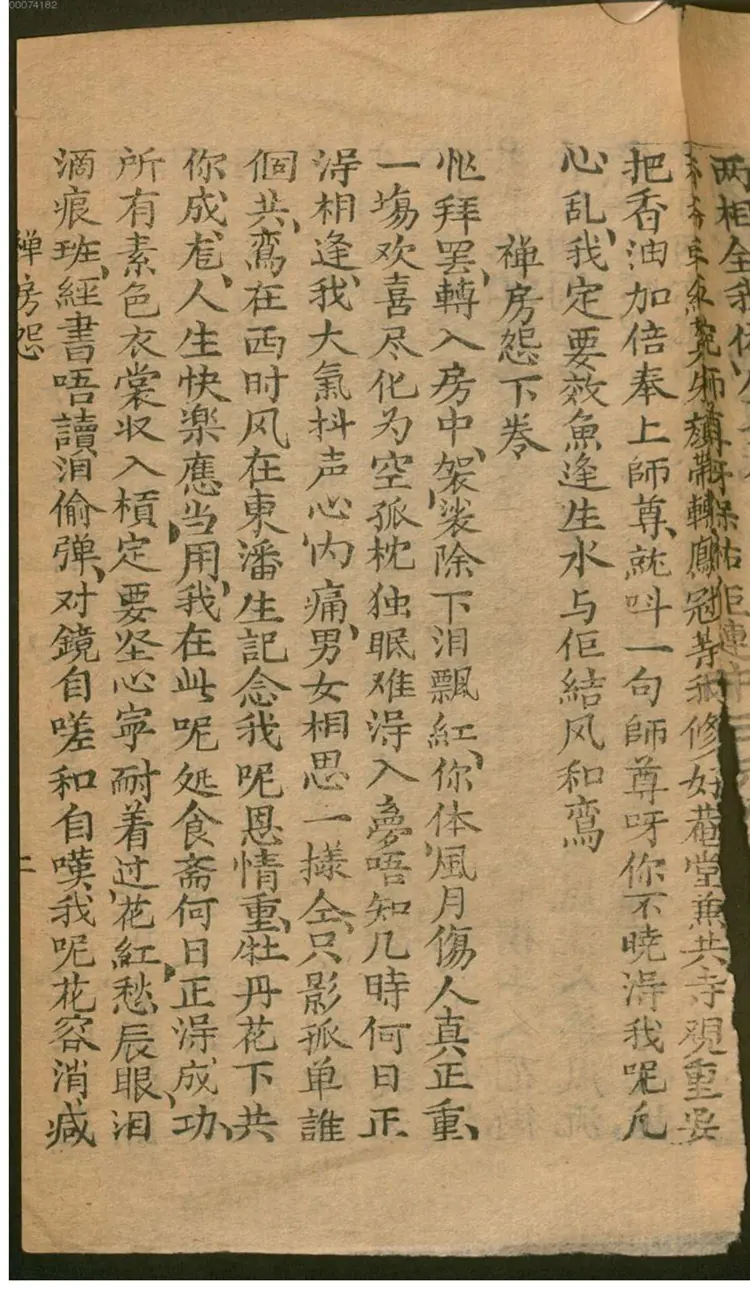 00074182
两相全我
师尊
保佑佢
鳳冠
修好菴堂兼共寺觀重要
把香油加倍奉上師尊、就呌一句師尊呀你不曉淂我呢凢
心乱、我定要效魚逢生水与佢結风和鸞
禅房怨下卷
拜罢、轉入房中、袈裟除下泪飄紅、你体風月傷人真正重、
一塲欢喜尽化为空孤枕独眠难淂入夣唔知几時何日正
淂相逢、我大氣抖声心内痛、男女相思一㨾仝、只影孤单誰
個共、鸞在西时风在東潘生記念我呢恩情重、牡丹花下共
你成、人生快楽應当用、我在此呢处食斋何日正淂成功、
所有素色衣裳収入槓定要坚心寧耐着过、花紅愁辰眼、泪
滴痕班、經書唔讀泪偷弹、对鏡自嗟和自嘆、我呢花容消减
禅房怨
二